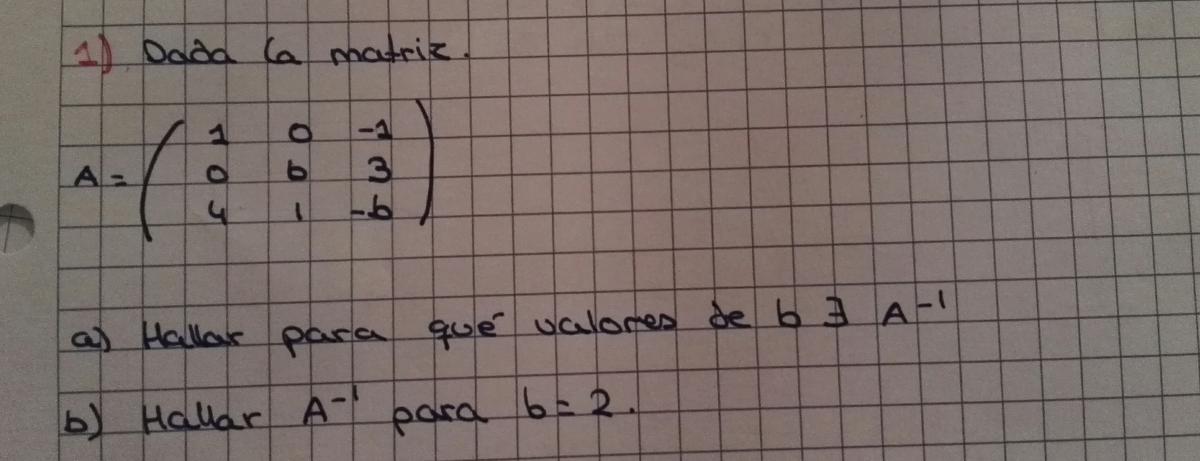 1) Dada la matriz.
1 0 -1
A = 0 b 3
4 1 -b
a) Hallar para qué valores de b ∃ A⁻¹
b) Hallar A⁻¹ para b = 2.